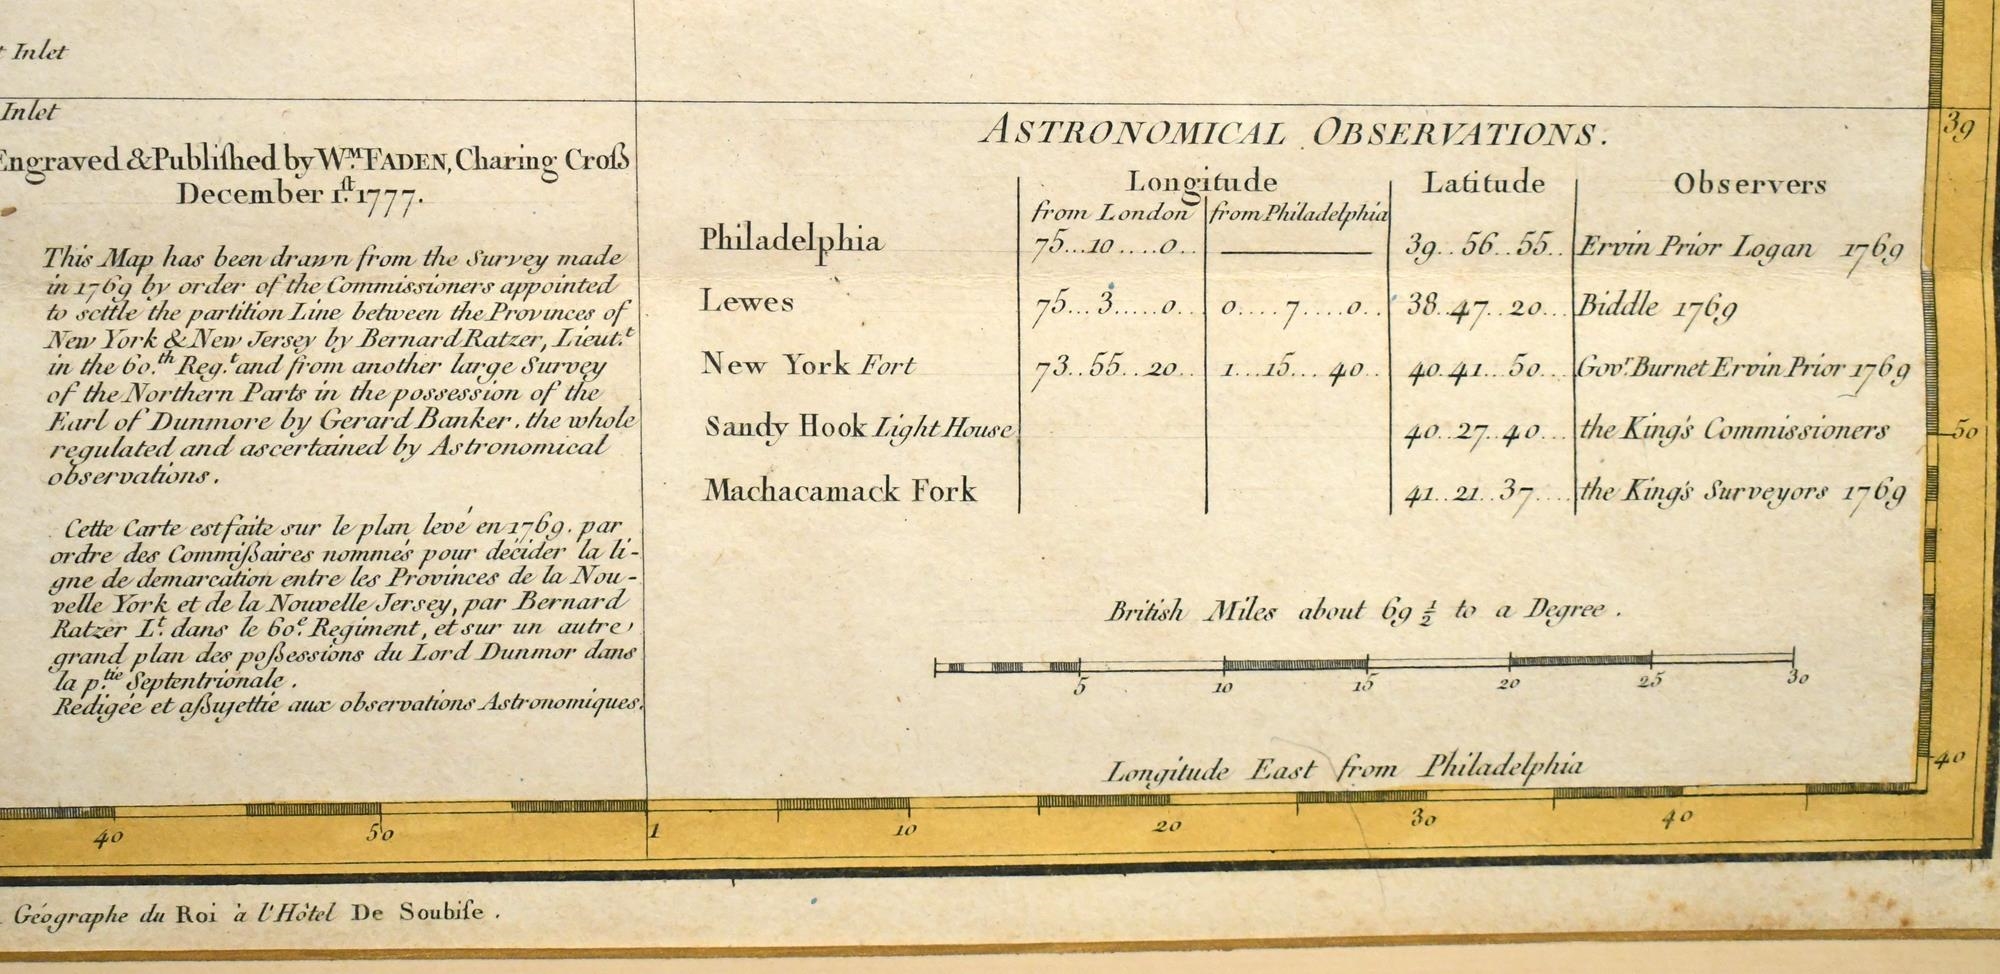 Inlet
Inlet
Engraved & Publiſhed by Wᴹ. FADEN, Charing Croſs
December 1.ſt 1777.
This Map has been drawn from the Survey made
in 1769 by order of the Commissioners appointed
to settle the partition Line between the Provinces of
New York & New Jersey by Bernard Ratzer, Lieut.t
in the 60.th Reg.t and from another large Survey
of the Northern Parts in the possession of the
Earl of Dunmore by Gerard Banker. the whole
regulated and ascertained by Astronomical
observations.
Cette Carte est faite sur le plan levé en 1769. par
ordre des Commiſsaires nommés pour décider la li-
gne de demarcation entre les Provinces de la Nou-
velle York et de la Nouvelle Jersey, par Bernard
Ratzer L.t dans le 60.e Regiment, et sur un autre
grand plan des poſsessions du Lord Dunmor dans
la p.tie Septentrionale.
Redigée et aſsujettie aux observations Astronomiques.
ASTRONOMICAL OBSERVATIONS.
Longitude Latitude Observers
from London from Philadelphia
Philadelphia 75...10....0.. 39..56..55.. Ervin Prior Logan 1769
Lewes 75...3.....0.. 0....7....0.. 38..47..20... Biddle 1769
New York Fort 73..55..20.. 1...15...40.. 40.41...50... Gov.r Burnet Ervin Prior 1769
Sandy Hook Light House 40..27..40... the King's Commissioners
Machacamack Fork 41..21..37.... the King's Surveyors 1769
British Miles about 69 1/2 to a Degree.
5 10 15 20 25 30
Longitude East from Philadelphia
39
50
40
40 50 1 10 20 30 40
Géographe du Roi à l'Hôtel De Soubiſe.